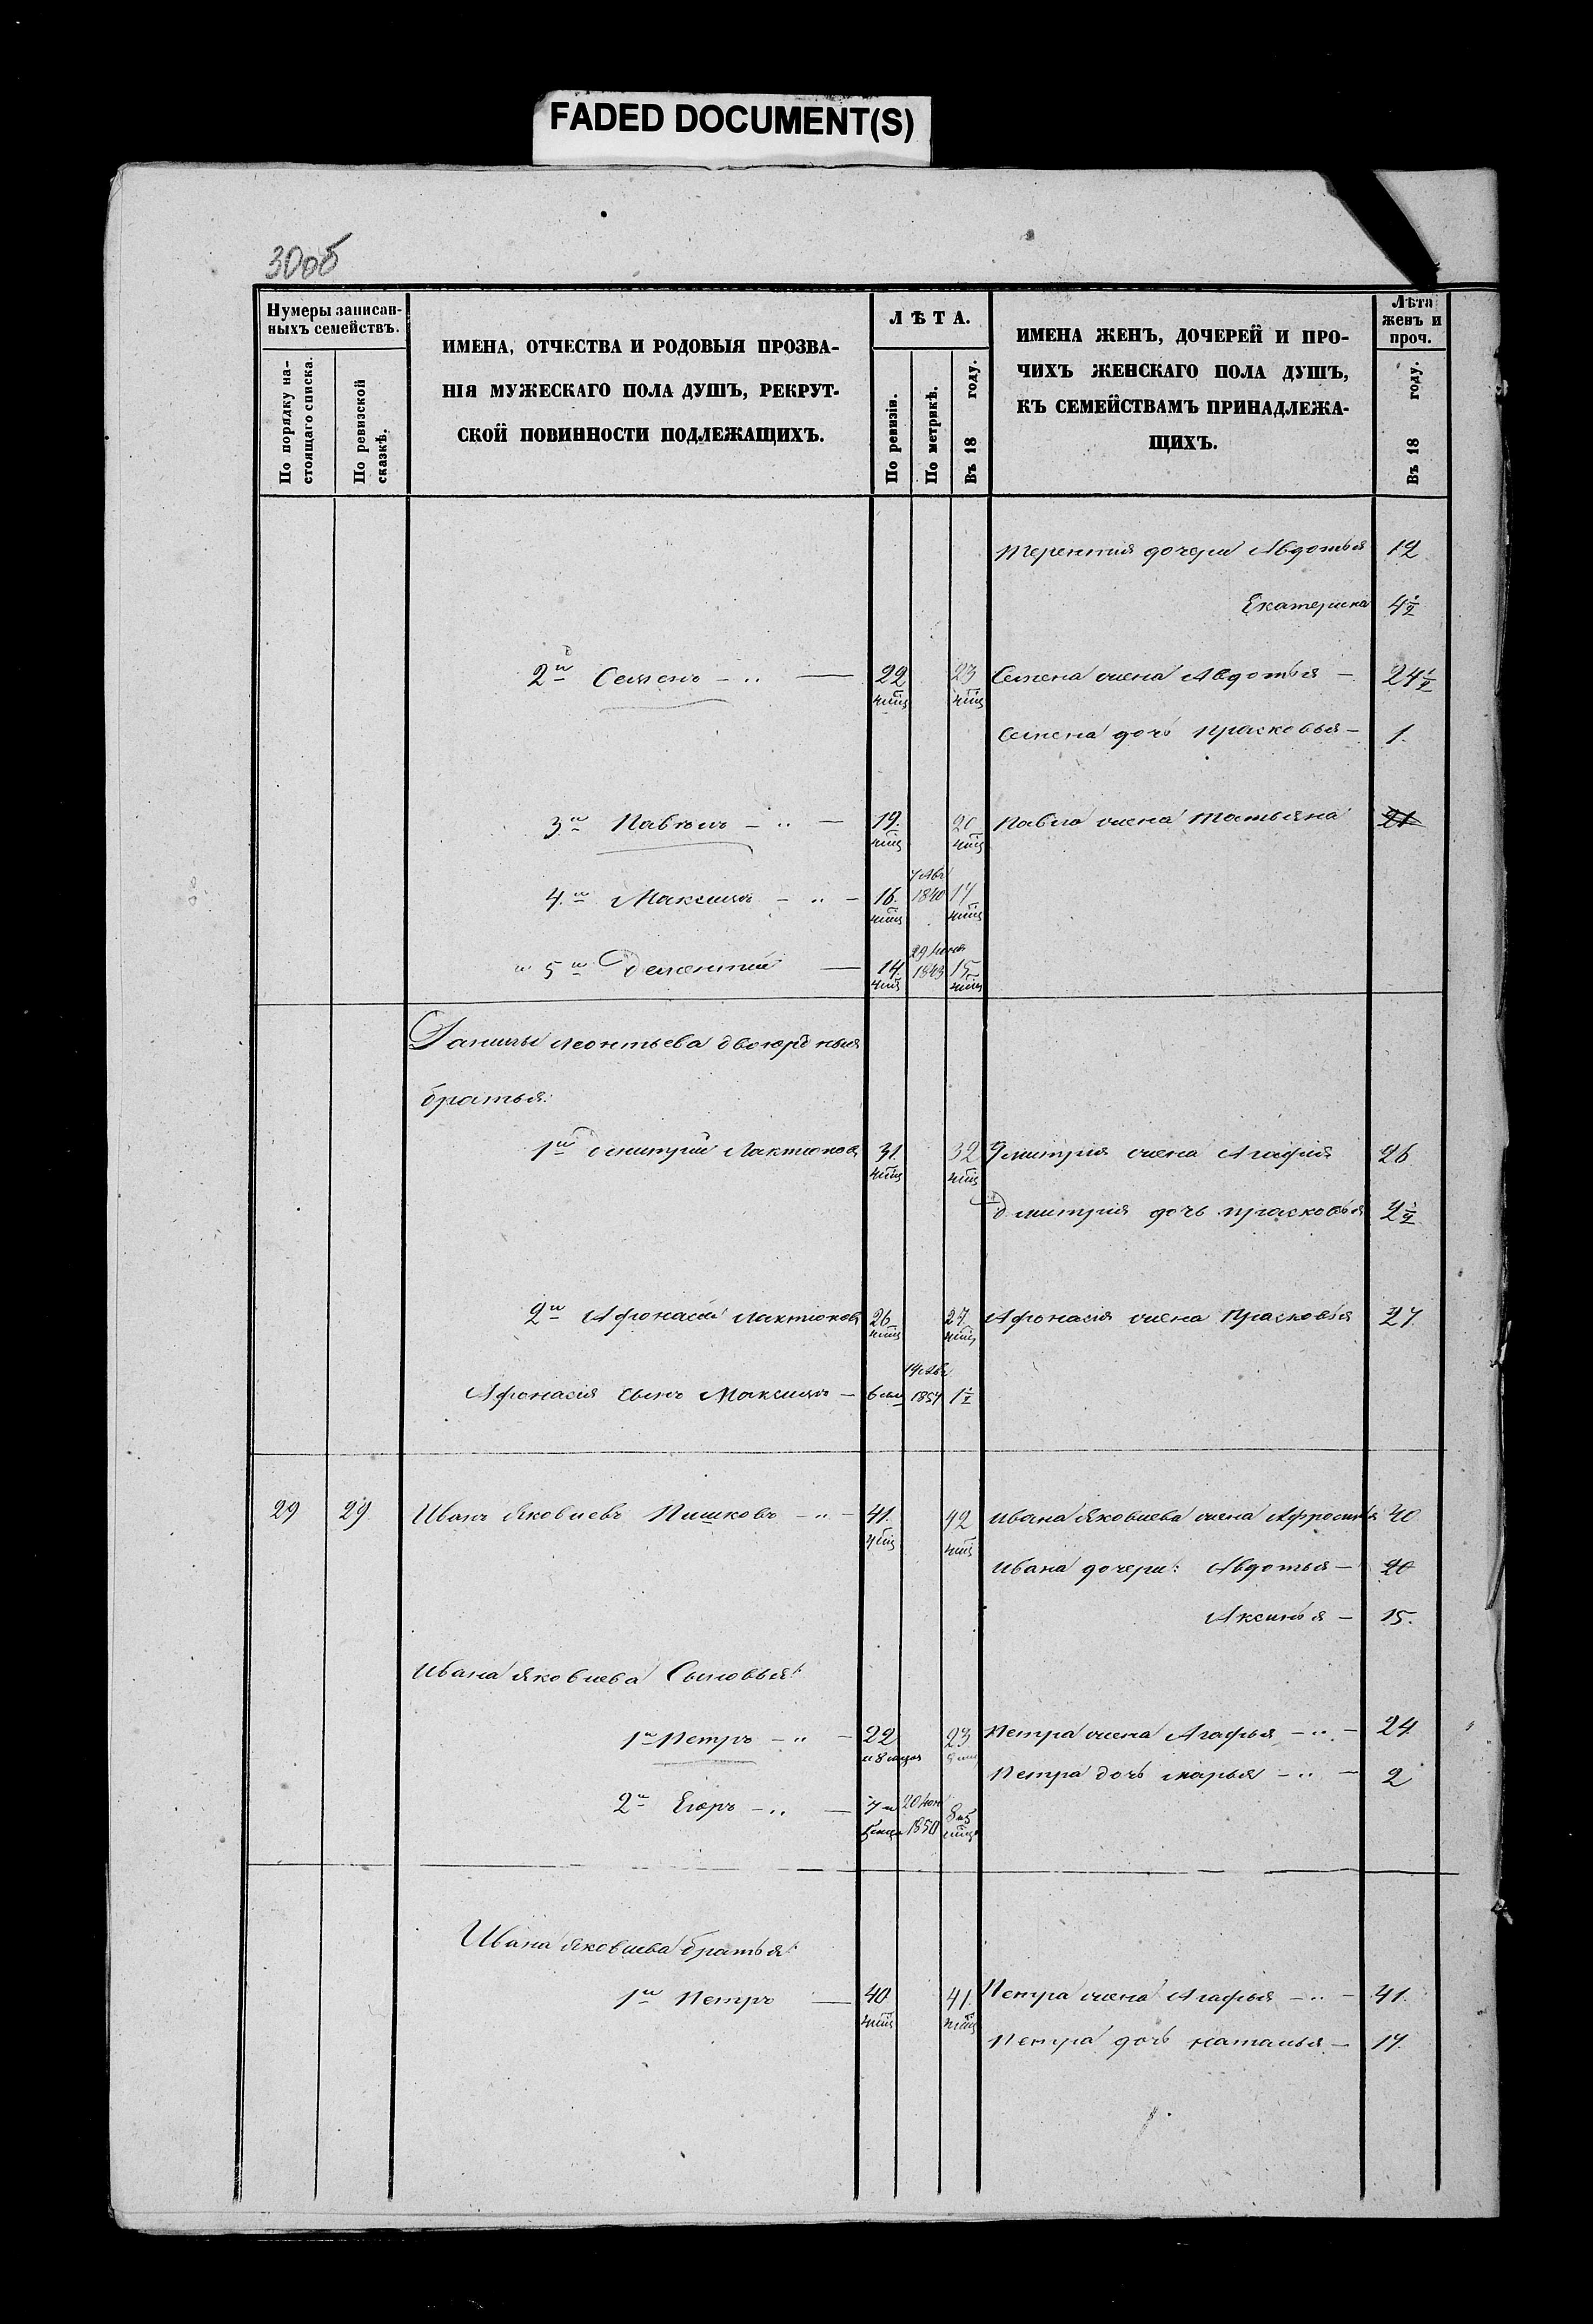 FADED DOCUMENT(S)
30об
Нумеры записан-
ныхъ семействъ.
По порядку на-
стоящаго списка.
По ревизской
сказкѣ.
ИМЕНА, ОТЧЕСТВА И РОДОВЫЯ ПРОЗВА-
НІЯ МУЖЕСКАГО ПОЛА ДУШЪ, РЕКРУТ-
СКОЙ ПОВИННОСТИ ПОДЛЕЖАЩИХЪ.
ЛѢТА.
По ревизіи.
По метрикѣ.
Въ 18 году.
ИМЕНА ЖЕНЪ, ДОЧЕРЕЙ И ПРО-
ЧИХЪ ЖЕНСКАГО ПОЛА ДУШЪ,
КЪ СЕМЕЙСТВАМЪ ПРИНАДЛЕЖА-
ЩИХЪ.
Лѣта
женъ и
проч.
Въ 18 году.
Терентия дочери Авдотья 12
Екатерина 4½
2й Семенъ 22 23 Семена жена Авдотья 24½
Семена дочь Прасковья 1.
3й Павелъ 19. 20 Павла жена Татьяна 21
4.й Максимъ 16. 1840 17
5й Дементий 14. 1843 15
Данилы Леонтьева двоюродныя
братья:
1й Дмитрий Лактионовъ 31. 32 Дмитрия жена Агафия 26
Дмитрия дочь Прасковья 2½
2й Афонасий Лактионовъ 26 27. Афонасия жена Прасковья 27.
Афонасия сынъ Максимъ 1857 1½
29 29. Иванъ Яковлевъ Пишковъ 41. 42 Ивана Яковлева жена Афросинья 40
Ивана дочери: Авдотья 20
Аксинья 15.
Ивана Яковлева Сыновья:
1й Петръ 22 23 Петра жена Агафья 24.
Петра дочь Марья 2
2й Егоръ 1850
Ивана Яковлева братья:
1й Петръ 40 41. Петра жена Агафья 41.
Петра дочь Наталья 17.